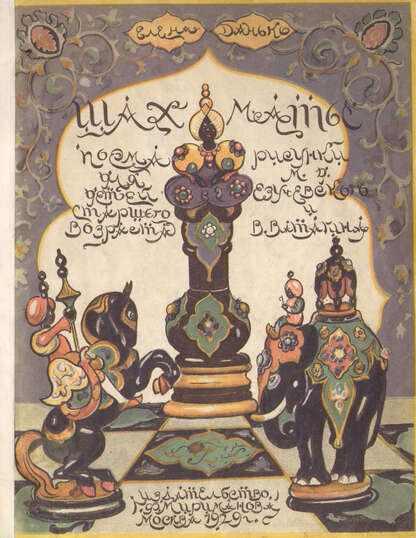 Елена Данько
Шахматы
поэма
для
детей
старшего
возраста
рисунки
М. Д.
Езучевского
и
В. Ватагина
издательство
Г. Ф. Мириманова
Москва 1929 г.